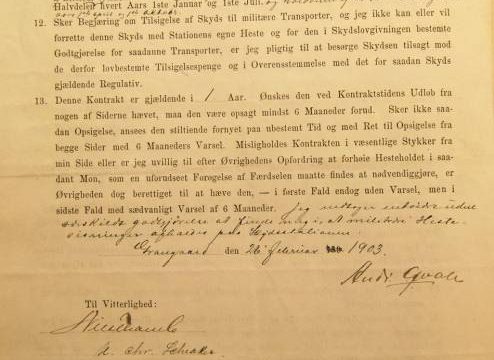 Halvdelen hvert Aars 1ste Januar og 1ste Juli
12. Sker Begjæring om Tilsigelse af Skyds til militære Transporter, og jeg ikke kan eller vil
forrette denne Skyds med Stationens egne Heste og for den i Skydslovgivningen bestemte
Godtgjørelse for saadanne Transporter, er jeg pligtig til at besørge Skydsen tilsagt mod
de derfor lovbestemte Tilsigelsespenge og i Overensstemmelse med det for saadan Skyds
gjældende Regulativ.
13. Denne Kontrakt er gjældende i 1 Aar. Ønskes den ved Kontraktstidens Udløb fra
nogen af Siderne hævet, maa den være opsagt mindst 6 Maaneder forud. Sker ikke saa-
dan Opsigelse, ansees den stiltiende fornyet paa ubestemt Tid og med Ret til Opsigelse fra
begge Sider med 6 Maaneders Varsel. Misligholdes Kontrakten i væsentlige Stykker fra
min Side eller er jeg uvillig til efter Øvrighedens Opfordring at forhøie Hesteholdet i saa-
dant Mon, som en uforudseet Forøgelse af Færdselen maatte findes at nødvendiggjøre, er
Øvrigheden dog berettiget til at hæve den, — i første Fald endog uden Varsel, men i
sidste Fald med sædvanligt Varsel af 6 Maaneder. Jeg uden
godtgjørelse at finde mig i at militære Heste
paa
den 26 februar 1903.
Til Vitterlighed: